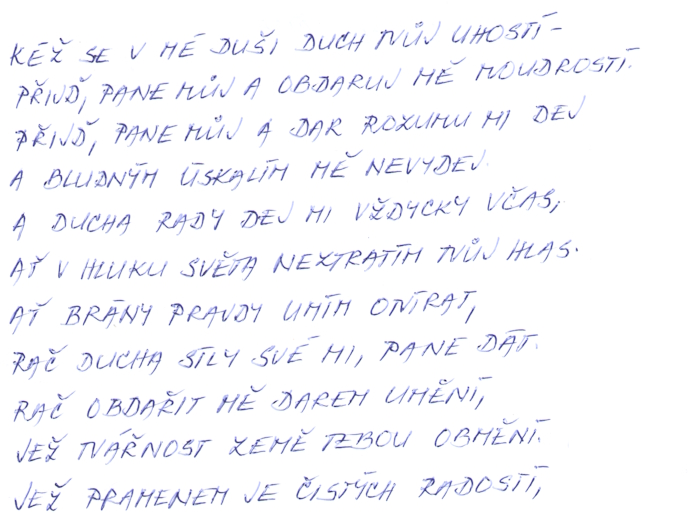 KÉŽ SE V MÉ DUŠI DUCH TVŮJ UHOSTÍ–
PŘIJĎ, PANE MŮJ A OBDARUJ MĚ MOUDROSTÍ.
PŘIJĎ, PANE MŮJ A DAR ROZUMU MI DEJ
A BLUDNÝM ÚSKALÍM MĚ NEVYDEJ.
A DUCHA RADY DEJ MI VŽDYCKY VČAS,
AŤ V HLUKU SVĚTA NEZTRATÍM TVŮJ HLAS.
AŤ BRÁNY PRAVDY UMÍM OTVÍRAT,
RAČ DUCHA SÍLY SVÉ MI, PANE DÁT.
RAČ OBDAŘIT MĚ DAREM UMĚNÍ,
JEŽ TVÁŘNOST ZEMĚ TEBOU OBMĚNÍ.
JEŽ PRAMENEM JE ČISTÝCH RADOSTÍ,